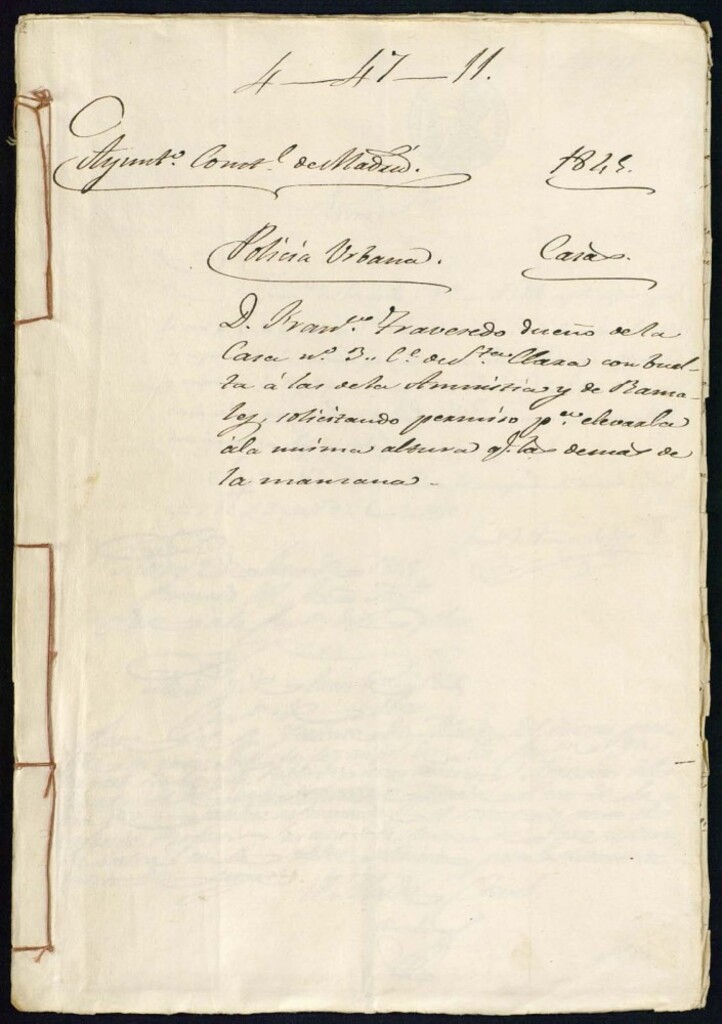 4—47—11.
Ayunt.º Const.l de Madrid. 184
Policia Urbana. Casas.
D. Fran.co Travesedo dueño de la
Casa nº 3.. C.e de S.ta Clara con buel-
ta á las de la Amnistia y de Rama-
les, solicitando permiso p.a elevarla
á la misma altura q.e las demas de
la manzana.